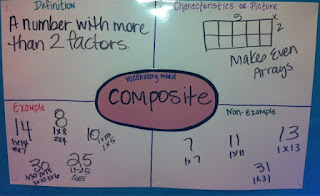 Definition
A number with more
than 2 factors.
Characteristics or Picture
5 x
2
Makes Even
Arrays
Vocabulary Word
COMPOSITE
Example
14
1x14
2x7
8
1x8
2x4
10
1x10
2x5
30
25
1x25
5x5
Non-Example
7
1x7
11
1x11
13
1x13
31
1x31